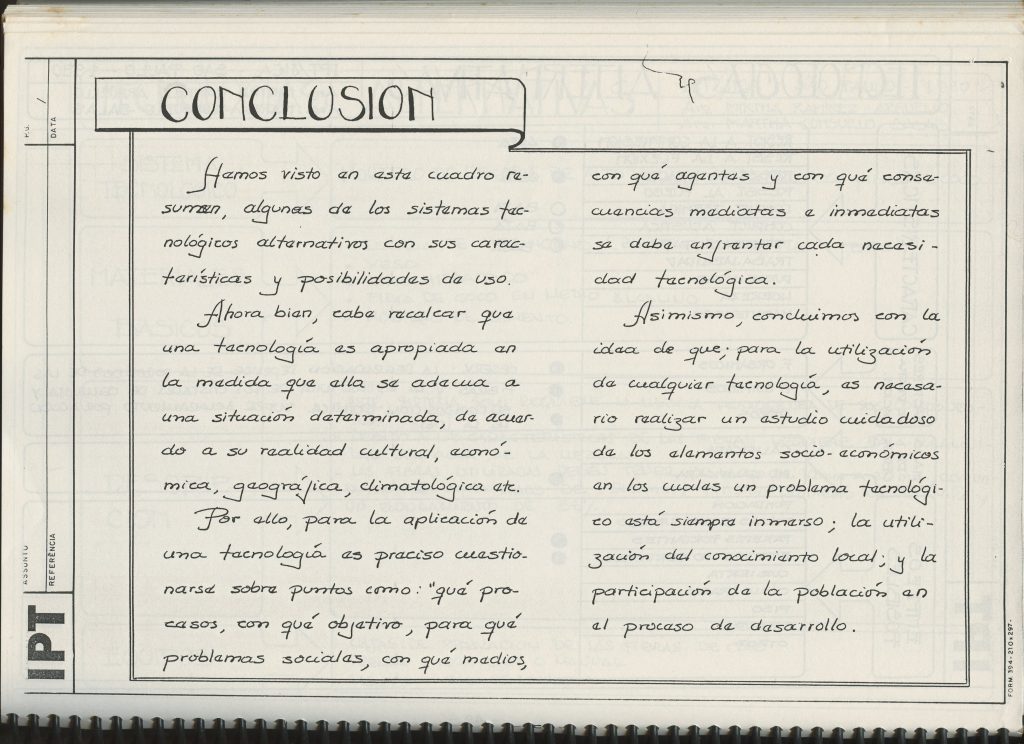 CONCLUSION
Hemos visto en este cuadro re-
sumen, algunas de los sistemas tec-
nológicos alternativos con sus carac-
terísticas y posibilidades de uso.
Ahora bien, cabe recalcar que
una tecnología es apropiada en
la medida que ella se adecua a
una situación determinada, de acuer-
do a su realidad cultural, econó-
mica, geográfica, climatológica etc.
Por ello, para la aplicación de
una tecnología es preciso cuestio-
narse sobre puntos como: "qué pro-
cesos, con qué objetivo, para qué
problemas sociales, con qué medios,
con qué agentes y con qué conse-
cuencias mediatas e inmediatas
se debe enfrentar cada necesi-
dad tecnológica.
Asimismo, concluimos con la
idea de que; para la utilización
de cualquier tecnología, es necesa-
rio realizar un estudio cuidadoso
de los elementos socio-económicos
en los cuales un problema tecnológi-
co está siempre inmerso; la utili-
zación del conocimiento local; y la
participación de la población en
el proceso de desarrollo.
DATA
ASSUNTO
REFERÊNCIA
IPT
FORM. 394-210x297-